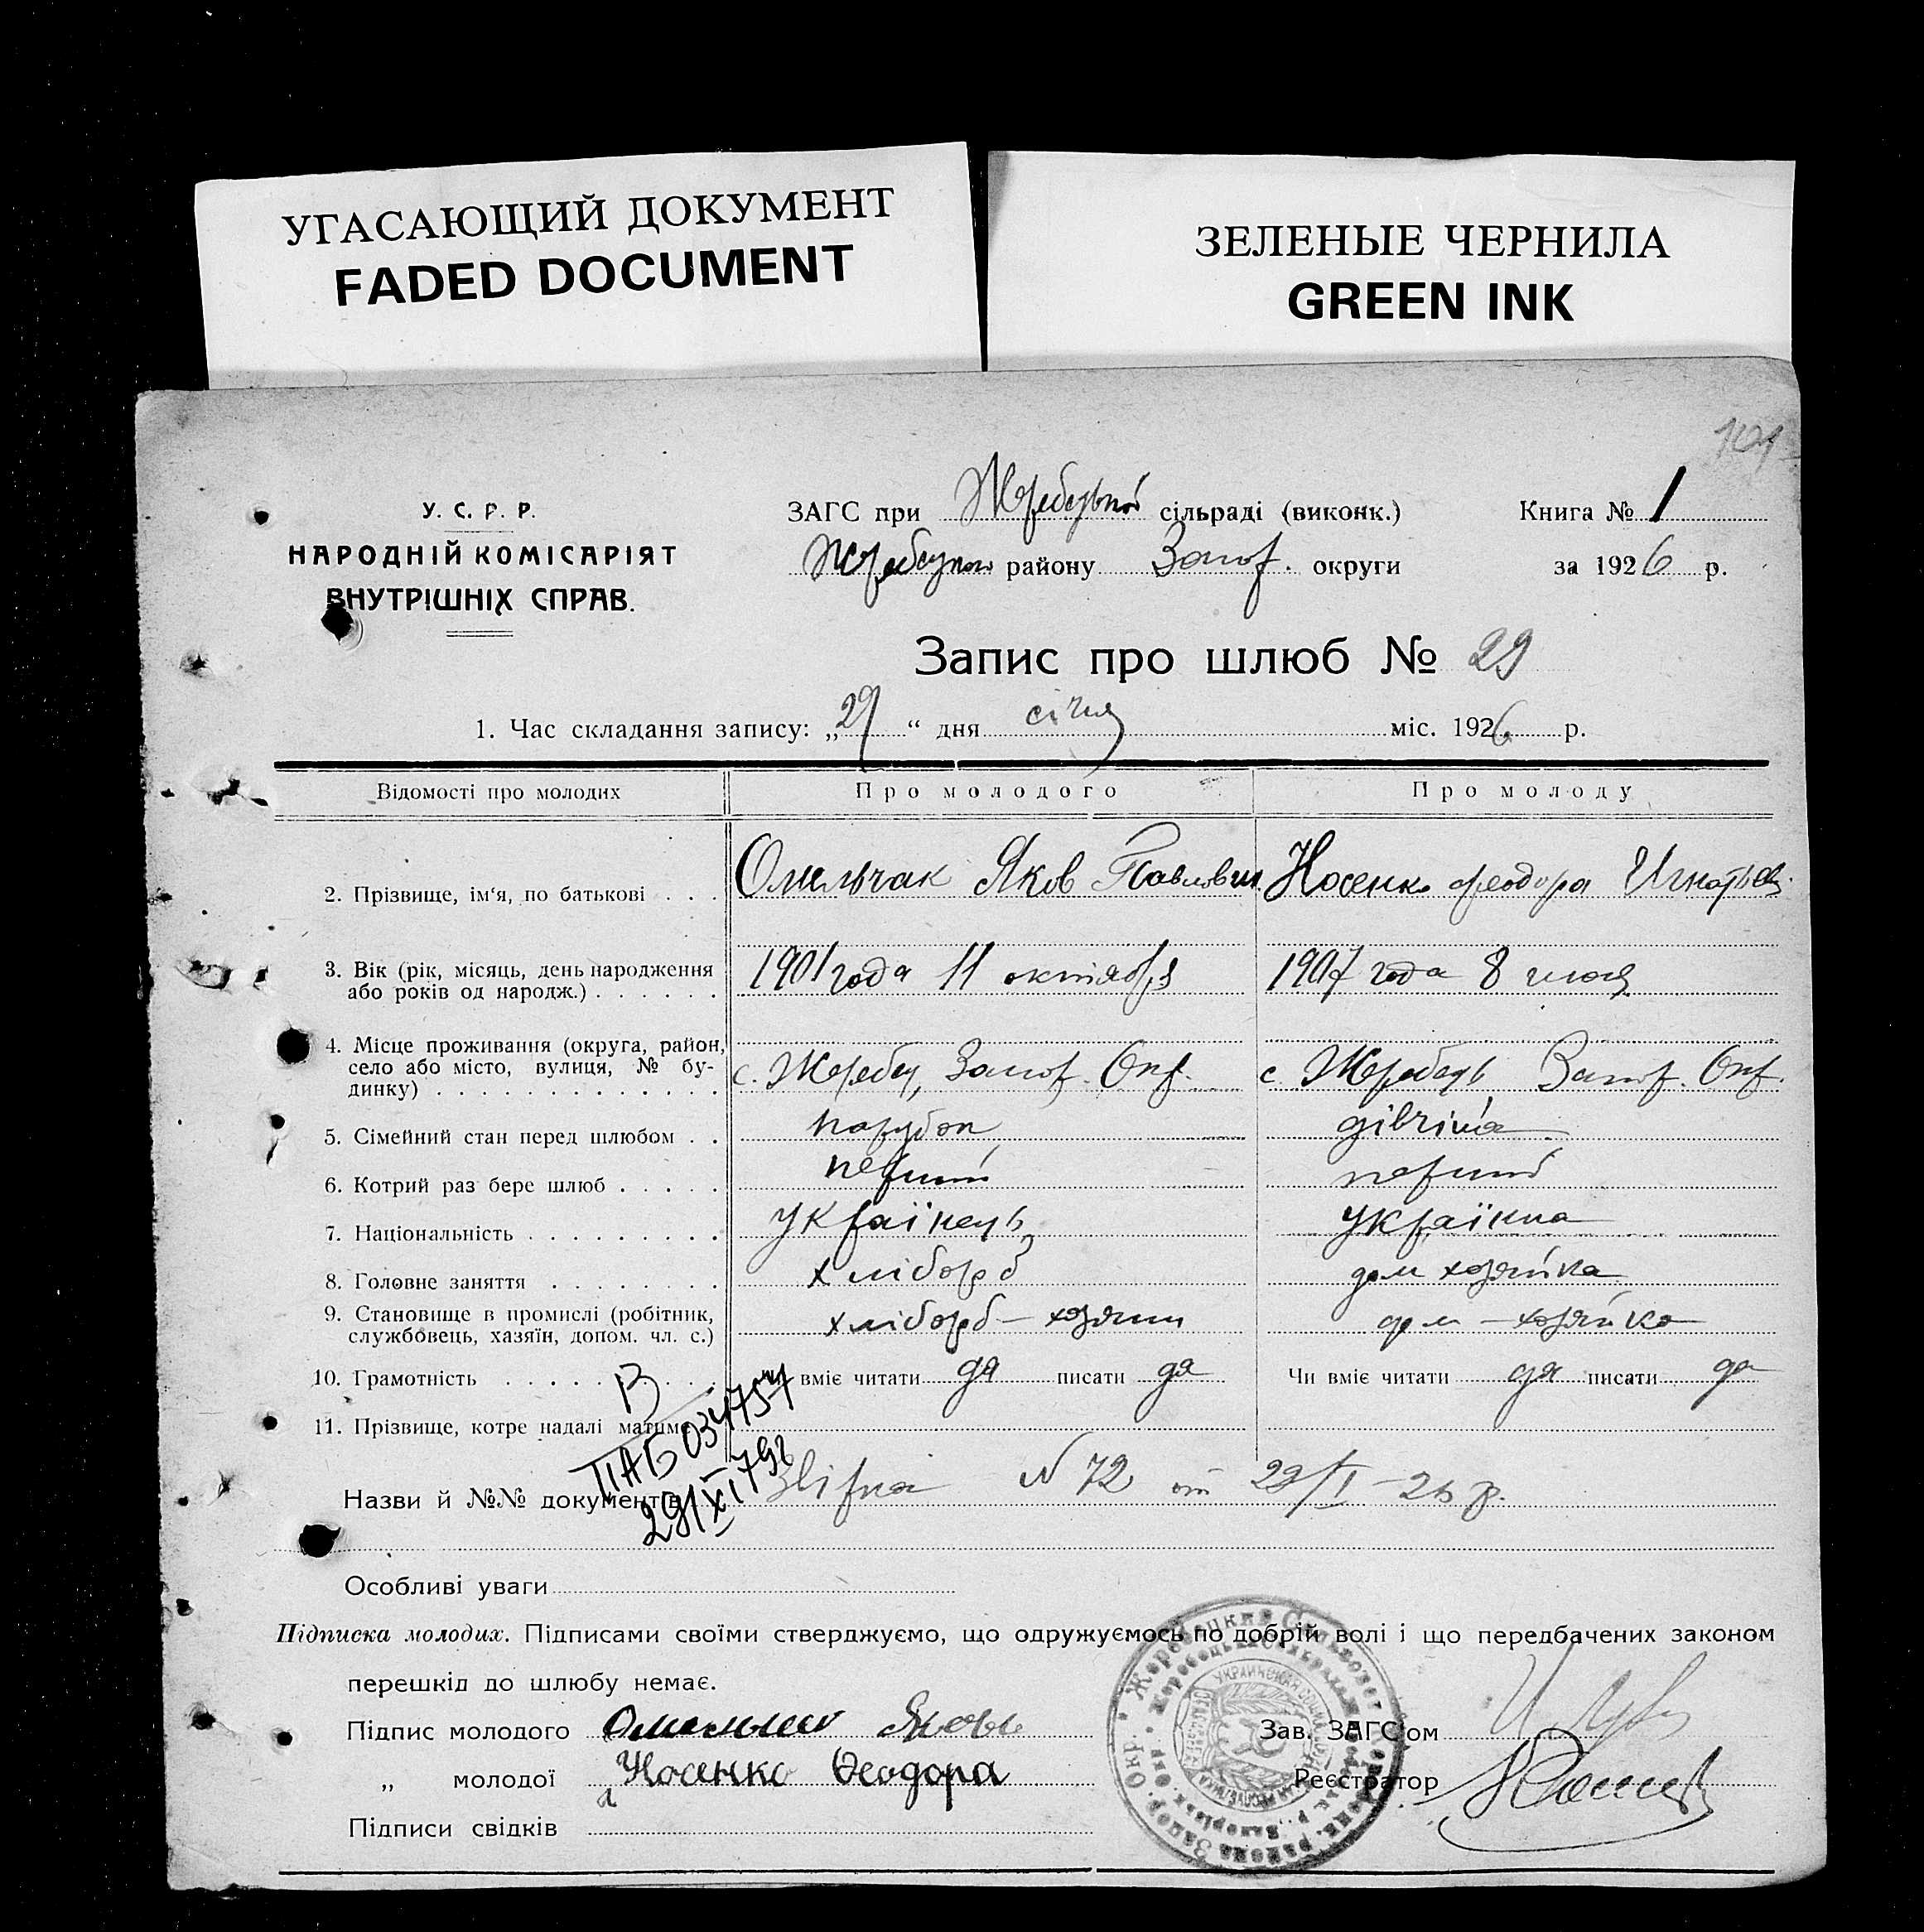 УГАСАЮЩИЙ ДОКУМЕНТ
FADED DOCUMENT
ЗЕЛЕНЫЕ ЧЕРНИЛА
GREEN INK
У. С. Р. Р.
НАРОДНІЙ КОМІСАРІЯТ
ВНУТРІШНІХ СПРАВ.
ЗАГС при Жеребецькой сільраді (виконк.)
району Запор. округи
Книга № 1
за 1926 р.
Запис про шлюб № 29
1. Час складання запису: „29“ дня січня міс. 1926 р.
Відомості про молодих Про молодого Про молоду
2. Прізвище, ім‘я, по батькові . . . Омельчак Яков Павлович Носенко феодора Игнатьев.
3. Вік (рік, місяць, день народження
або років од народж.) . . . . . . 1901 года 11 октября 1907 года 8 июня
4. Місце проживання (округа, район,
село або місто, вулиця, № бу-
динку) . . . . . . . . . . . . . с. Жеребец, Запор. Окр. с Жеребець Запор. Окр.
5. Сімейний стан перед шлюбом . . парубок дівчина
6. Котрий раз бере шлюб . . . . . перший перший
7. Національність . . . . . . . . . українець українка
8. Головне заняття . . . . . . . . хлібороб дом хозяйка
9. Становище в промислі (робітник,
службовець, хазяїн, допом. чл. с.) хлібороб — хозяин дом — хозяйка
10. Грамотність . . . . . . . . . . вміє читати да писати да Чи вміє читати да писати да
11. Прізвище, котре надалі матиме
Назви й №№ документів N 72 от 29/I — 26 р.
ІІАБ 034757
29/XI 792
Особливі уваги
Підписка молодих. Підписами своїми стверджуємо, що одружуємось по добрій волі і що передбачених законом
перешкід до шлюбу немає.
Підпис молодого
„ молодої Носенко Феодора
Підписи свідків
Зав. ЗАГС'ом
Реєстратор